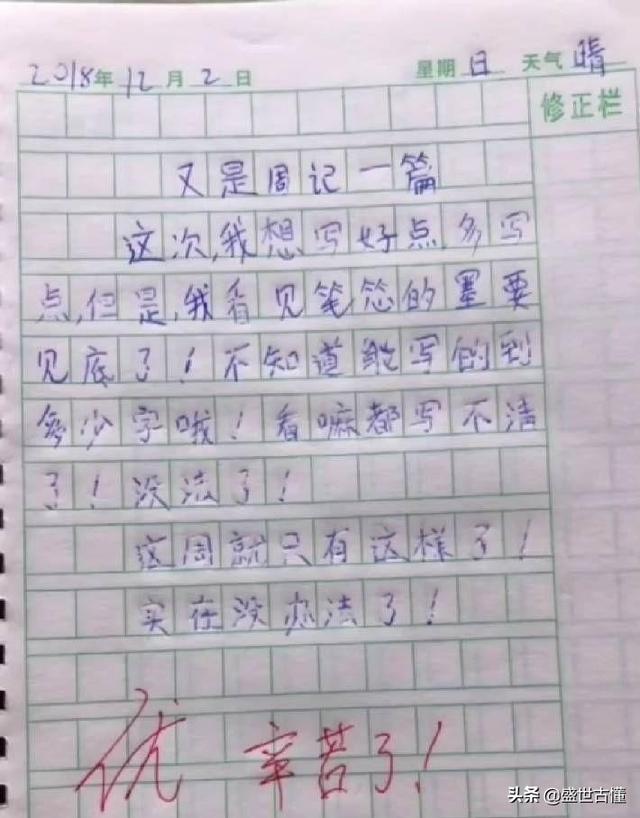 2018年12月2日 星期日 天气晴
修正栏
又是周记一篇
这次,我想写好点多写
点,但是,我看见笔芯的墨要
见底了!不知道能写的到
多少字哦!看嘛都写不清
了!没法了!
这周就只有这样了!
实在没办法了!
优 辛苦了!
头条 @盛世古懂